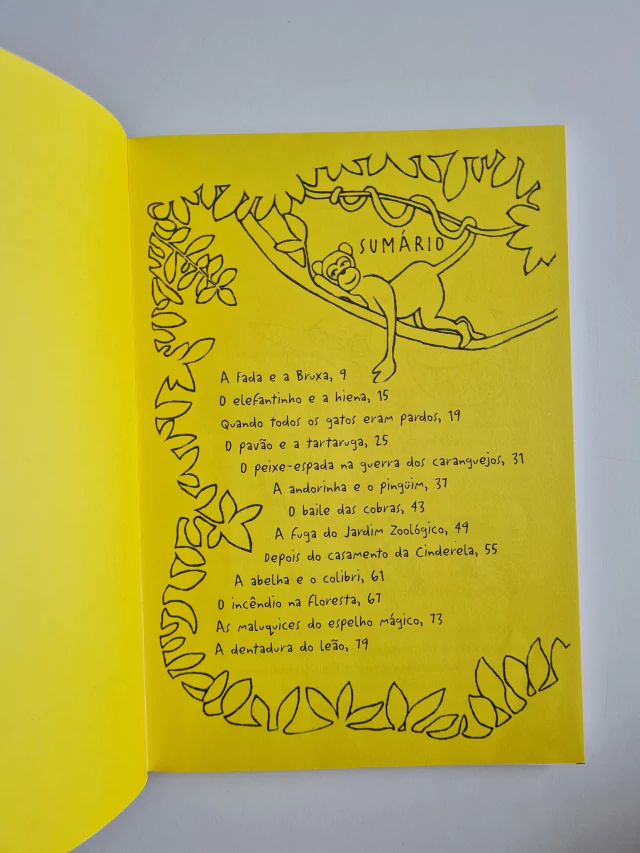 SUMÁRIO
A Fada e a Bruxa, 9
O elefantinho e a hiena, 15
Quando todos os gatos eram pardos, 19
O pavão e a tartaruga, 25
O peixe-espada na guerra dos caranguejos, 31
A andorinha e o pingüim, 37
O baile das cobras, 43
A fuga do Jardim Zoológico, 49
Depois do casamento da Cinderela, 55
A abelha e o colibri, 61
O incêndio na floresta, 67
As maluquices do espelho mágico, 73
A dentadura do leão, 79